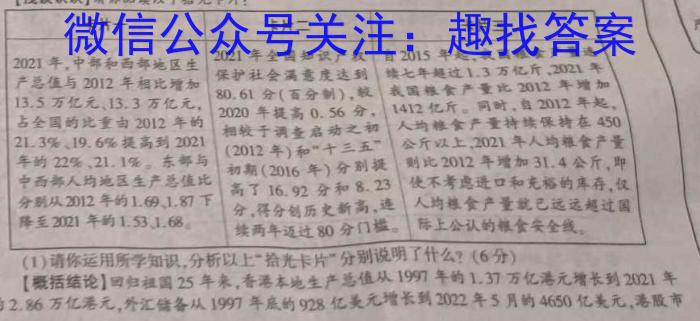 微信公众号关注：趣找答案
2021年,中部和西部地区生
产总值与2012年相比增加
13.5万亿元、13.3万亿元,
占全国的比重由2012年的
21.3%、19.6%提高到2021
年的22%、21.1%。东部与
中西部人均地区生产总值比
分别从2012年的1.69、1.87下
降至2021年的1.53、1.68。
2021年全国知识产权
保护社会满意度达到
80.61分(百分制),较
2020年提高0.56分,
相较于调查启动之初
(2012年)和“十三五”
初期(2016年)分别提
高了16.92分和8.23
分,得分创历史新高,连
续两年迈过80分门槛。
自2015年起,我国粮食
续七年超过1.3万亿斤,2021年
我国粮食产量比2012年增加
1412亿斤。同时,自2012年起,
人均粮食产量持续保持在450
公斤以上,2021年人均粮食产量
则比2012年增加31.4公斤,即
使不考虑进口和充裕的库存,仅
人均粮食产量就已远远超过国
际上公认的粮食安全线。
(1)请你运用所学知识,分析以上“拾光卡片”分别说明了什么?(6分)
【概括结论】回归祖国25年来,香港本地生产总值从1997年的1.37万亿港元增长到2021年
2.86万亿港元,外汇储备从1997年底的928亿美元增长到2022年5月的4650亿美元,港股市